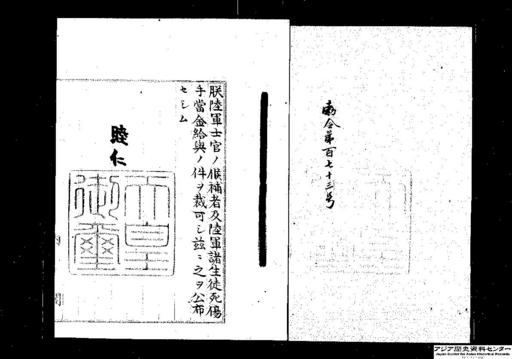 勅令第百七十三号
朕陸軍士官ノ候補者及陸軍諸生徒死傷
手當金給與ノ件ヲ裁可シ茲ニ之ヲ公布
セシム
睦仁
天皇
御璽
アジア歴史資料センター
Japan Center for Asian Historical Records